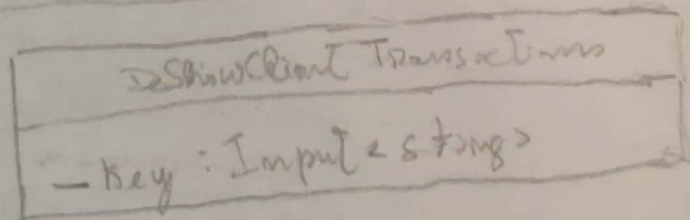 DoShowClientTransactions
- Key : Input<string>